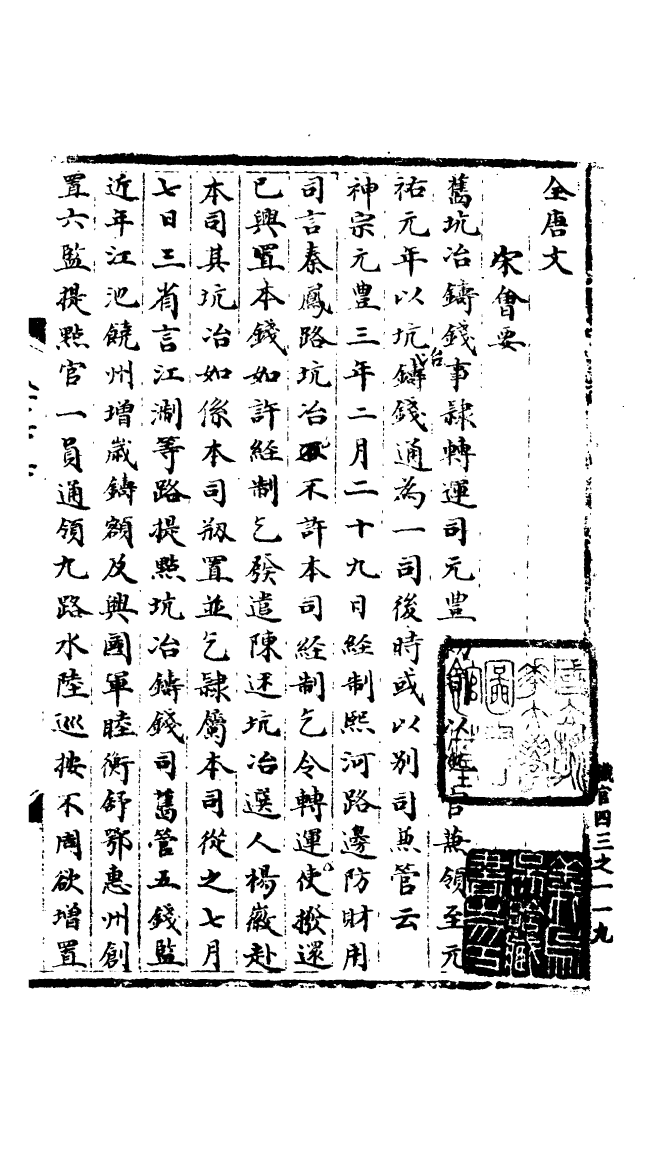 全唐文
宋會要
舊坑冶鑄錢事隸轉運司元豐初節以監官兼領至元
祐元年以坑冶鑄錢通為一司後時或以別司兼管云
神宗元豐三年二月二十九日經制熙河路邊防財用
司言秦鳳路坑冶不許本司經制乞令轉運使撥還
已興置本錢如許經制乞發遣陳述坑冶選人楊徽赴
本司其坑冶如係本司剏置並乞隸屬本司從之七月
七日三省言江淛等路提㸃坑冶鑄錢司舊管五錢監
近年江池饒州增歲鑄額及興國軍睦衡舒鄂惠州創
置六監提㸃官一員通領九路水陸巡按不周欲增置
職官四三之一一九